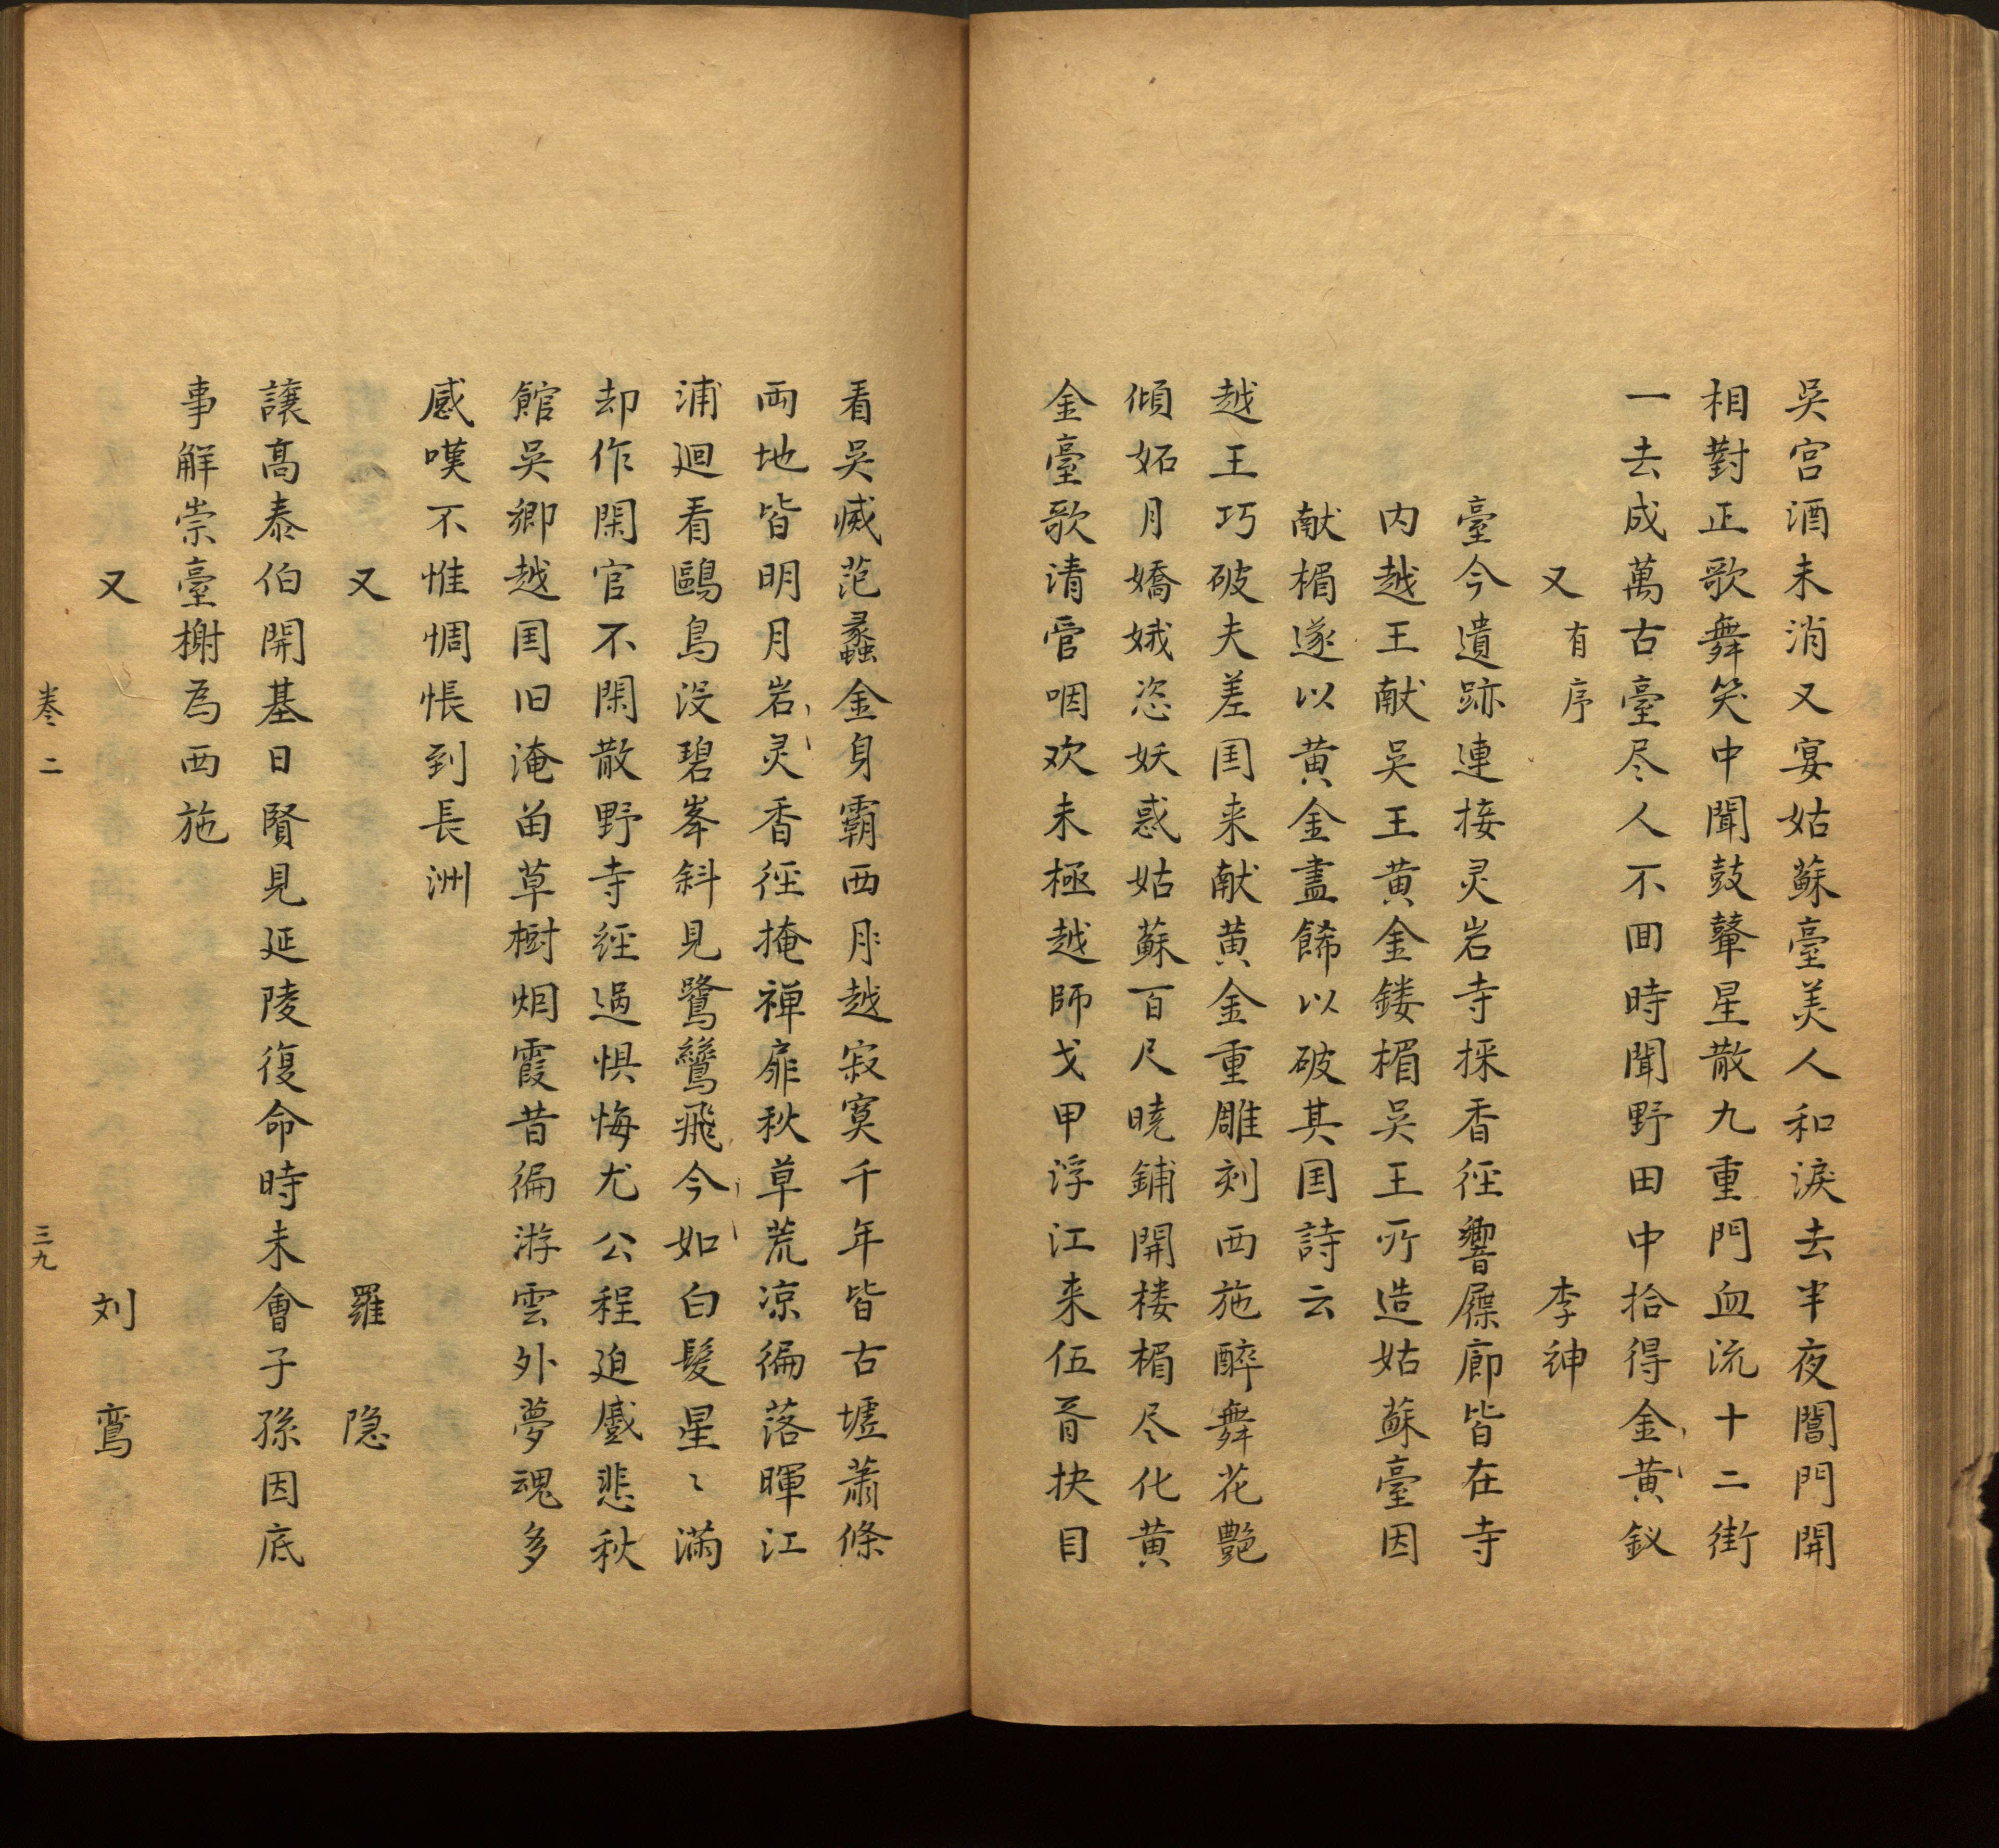 吳宮酒未消又宴姑蘇臺美人和淚去半夜閶門開
相對正歌舞笑中聞鼓鼙星散九重門血流十二街
一去成萬古臺尽人不囬時聞野田中拾得金黃釵
又有序 李紳
臺今遺跡連接灵岩寺採香徑響屧廊皆在寺
內越王献吳王黄金鏤楣吳王所造姑蘇臺因
献楣遂以黄金盡餙以破其国詩云
越王巧破夫差国来献黄金重雕刻西施醉舞花艷
傾妬月嬌娥恣妖惑姑蘇百尺曉鋪開楼楣尽化黄
金臺歌清管咽欢未極越師戈甲浮江来伍胥抉目
看吳滅范蠡金身霸西月越寂寞千年皆古墟蕭條
両地皆明月岩灵香徑掩禅扉秋草荒凉徧落暉江
浦迴看鷗鳥没碧峯斜見鷺鷥飛今如白髮星〻滿
却作閑官不閑散野寺經過惧悔尤公程迫感悲秋
館吳鄉越国旧淹畄草樹烟霞昔徧游雲外夢魂多
感嘆不惟惆悵到長洲
又 羅隐
讓髙泰伯開基日賢見延陵復命時未會子孫因底
事解崇臺榭為西施
又 刘鸾
卷二 三九